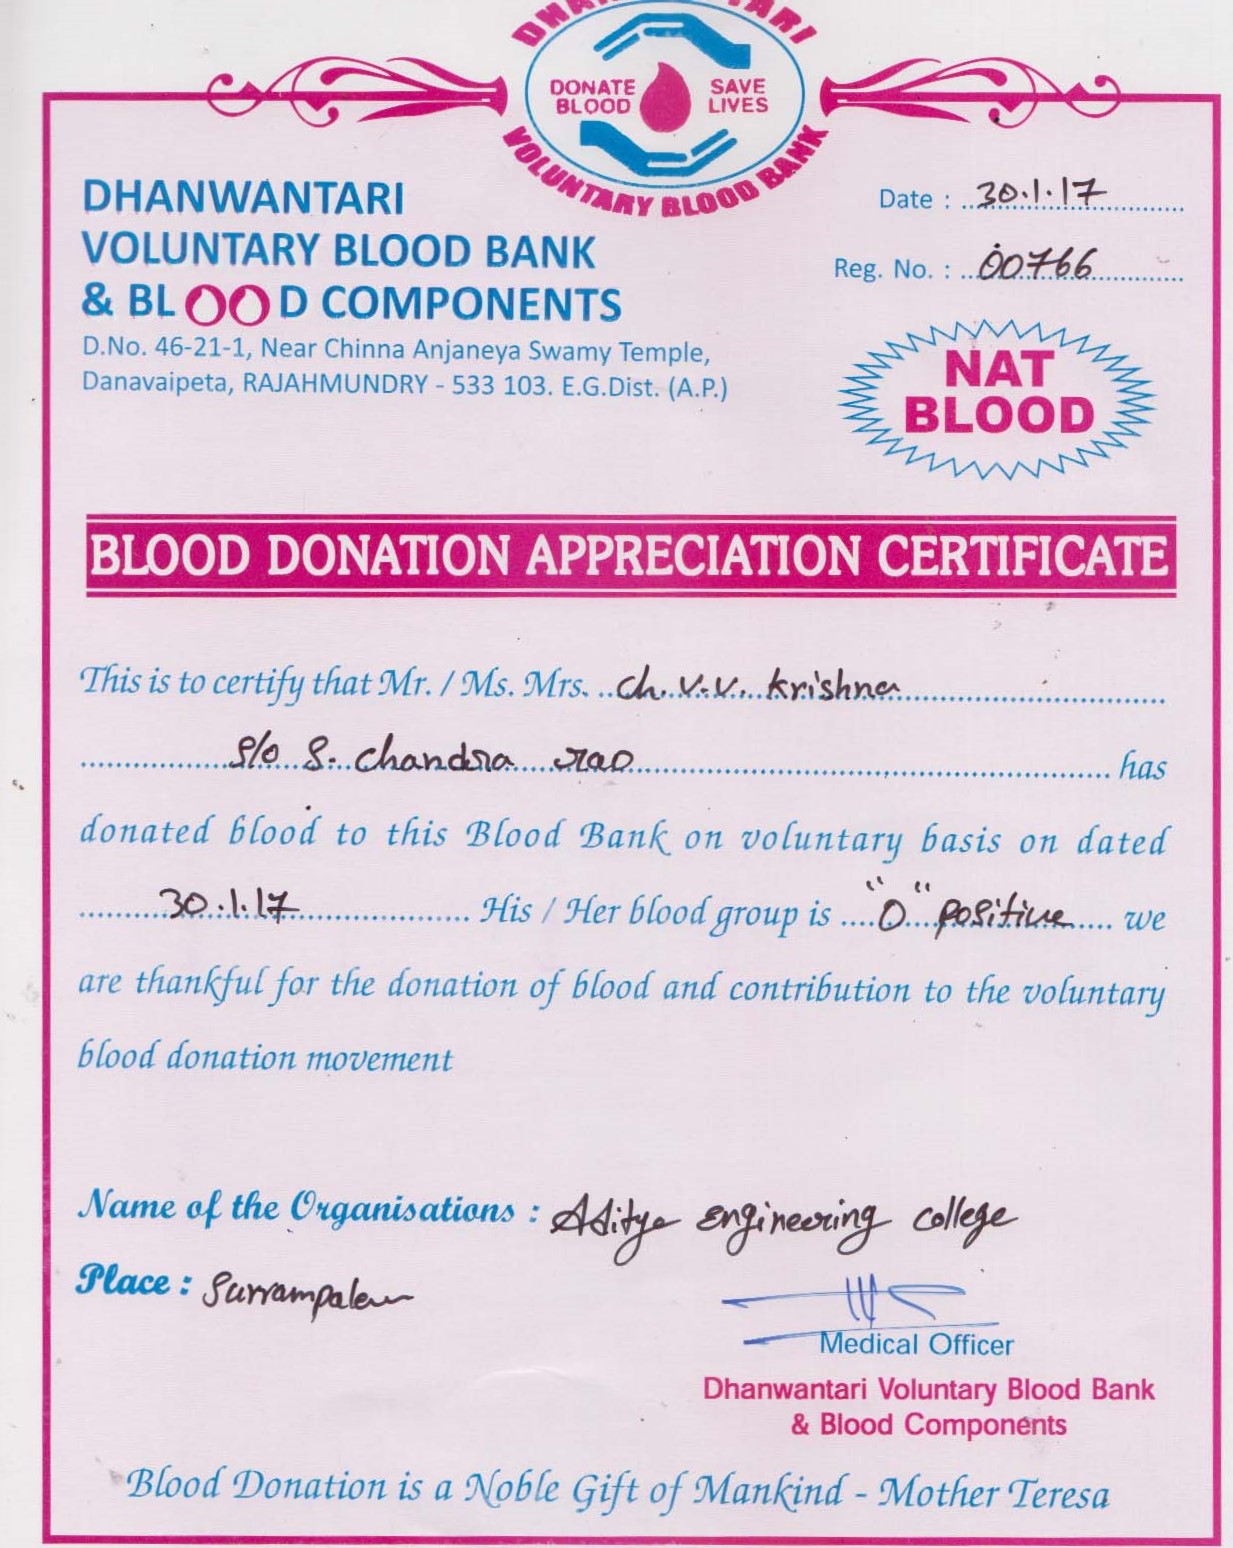 DONATE BLOOD SAVE LIVES
VOLUNTARY BLOOD BANK
DHANWANTARI
VOLUNTARY BLOOD BANK
& BLOOD COMPONENTS
D.No. 46-21-1, Near Chinna Anjaneya Swamy Temple,
Danavaipeta, RAJAHMUNDRY - 533 103. E.G.Dist. (A.P.)
Date : 30.1.17
Reg. No. : 00766
NAT
BLOOD
BLOOD DONATION APPRECIATION CERTIFICATE
This is to certify that Mr. / Ms. Mrs. Ch. V.V. Krishna
S/o S. Chandra rao has
donated blood to this Blood Bank on voluntary basis on dated
30.1.17 His / Her blood group is "O" positive we
are thankful for the donation of blood and contribution to the voluntary
blood donation movement
Name of the Organisations : Aditya engineering college
Place : Surrampalem
Medical Officer
Dhanwantari Voluntary Blood Bank
& Blood Components
Blood Donation is a Noble Gift of Mankind - Mother Teresa